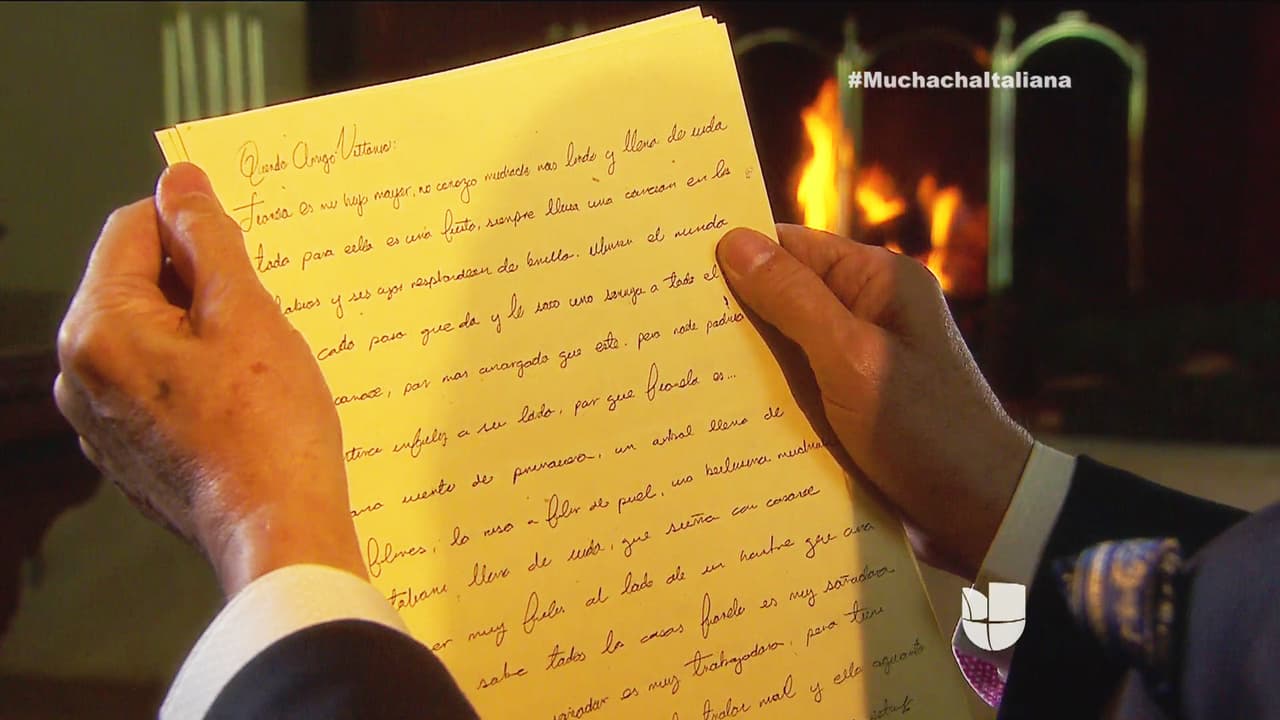 #MuchachaItaliana
Querido Amigo Vittorio:
es mi hija mayor, no conozco muchacha mas linda y llena de vida
toda para ella es una fiesta, siempre lleva una cancion en los
labios y sus ojos resplandecen de brillo. el mundo
cada paso que da y le saca una sonrisa a todo el
conoce, por mas amargado que este. pero nadie podria
infeliz a su lado, por que fiorella es...
viento de primavera, un arbol lleno de
flores, la risa a flor de piel, una bellisima muchacha
llena de vida, que sueña con casarse
ser muy feliz al lado de un hombre que
sabe todas las cosas fiorella es muy soñadora
es muy trabajadora, pero tiene
mal y ella aguanta